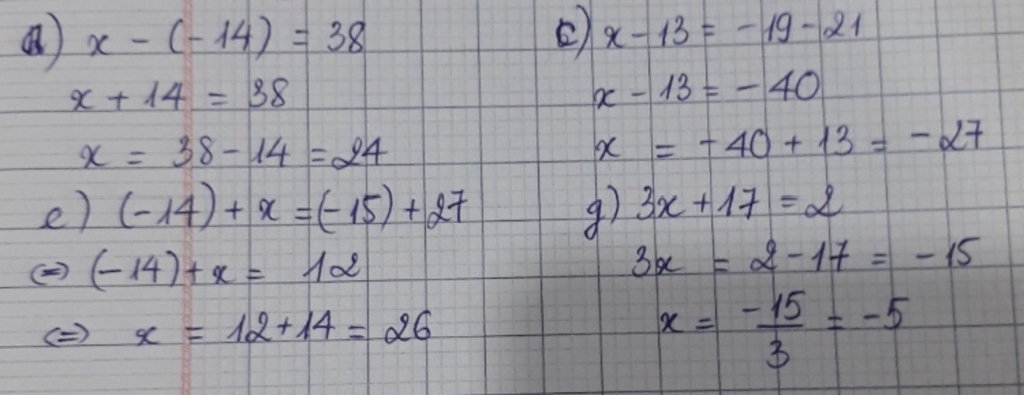 a) x - (-14) = 38
x + 14 = 38
x = 38 - 14 = 24
e) (-14) + x = (-15) + 27
(=) (-14) + x = 12
(=) x = 12 + 14 = 26
c) x - 13 = -19 - 21
x - 13 = -40
x = -40 + 13 = -27
g) 3x + 17 = 2
3x = 2 - 17 = -15
x = -15/3 = -5